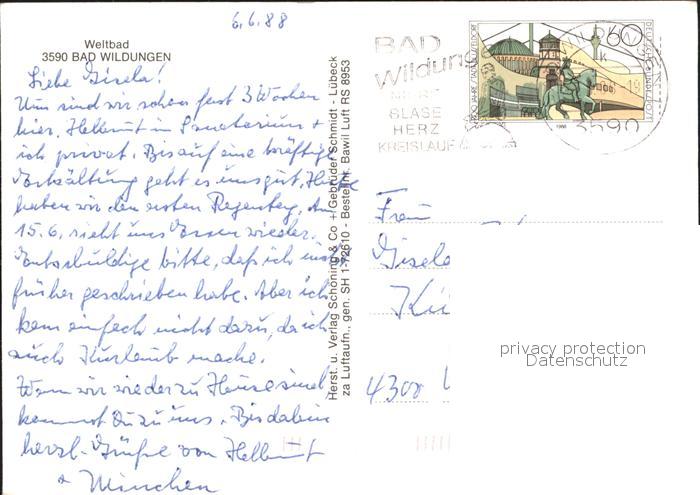 6.6.88
Weltbad
3590 BAD WILDUNGEN
Liebe Gisela!
Nun sind wir schon fast 3 Wochen
hier. Hellmut im Sanatorium +
ich privat. Bis auf eine kräftige
Erkältung geht es uns gut. Heute
haben wir den ersten Regentag. Am
15.6. sieht uns Essen wieder.
Entschuldige bitte, daß ich nicht
früher geschrieben habe. Aber ich
kam einfach nicht dazu, da ich
auch Kurlaub mache.
Wenn wir wieder zu Hause sind
kommst Du zu uns. Bis dahin
herzl. Grüße von Hellmut
+ Minchen
Herst. u. Verlag Schöning & Co + Gebrüder Schmidt - Lübeck
za Luftaufn., gen. SH 1-72610 - Bestellnr. Bawil Luft RS 8953
BAD
Wildungen
NIERE
BLASE
HERZ
KREISLAUF
60
DEUTSCHE BUNDESPOST
1988
3590
Frau
Gisela
4300
privacy protection
Datenschutz